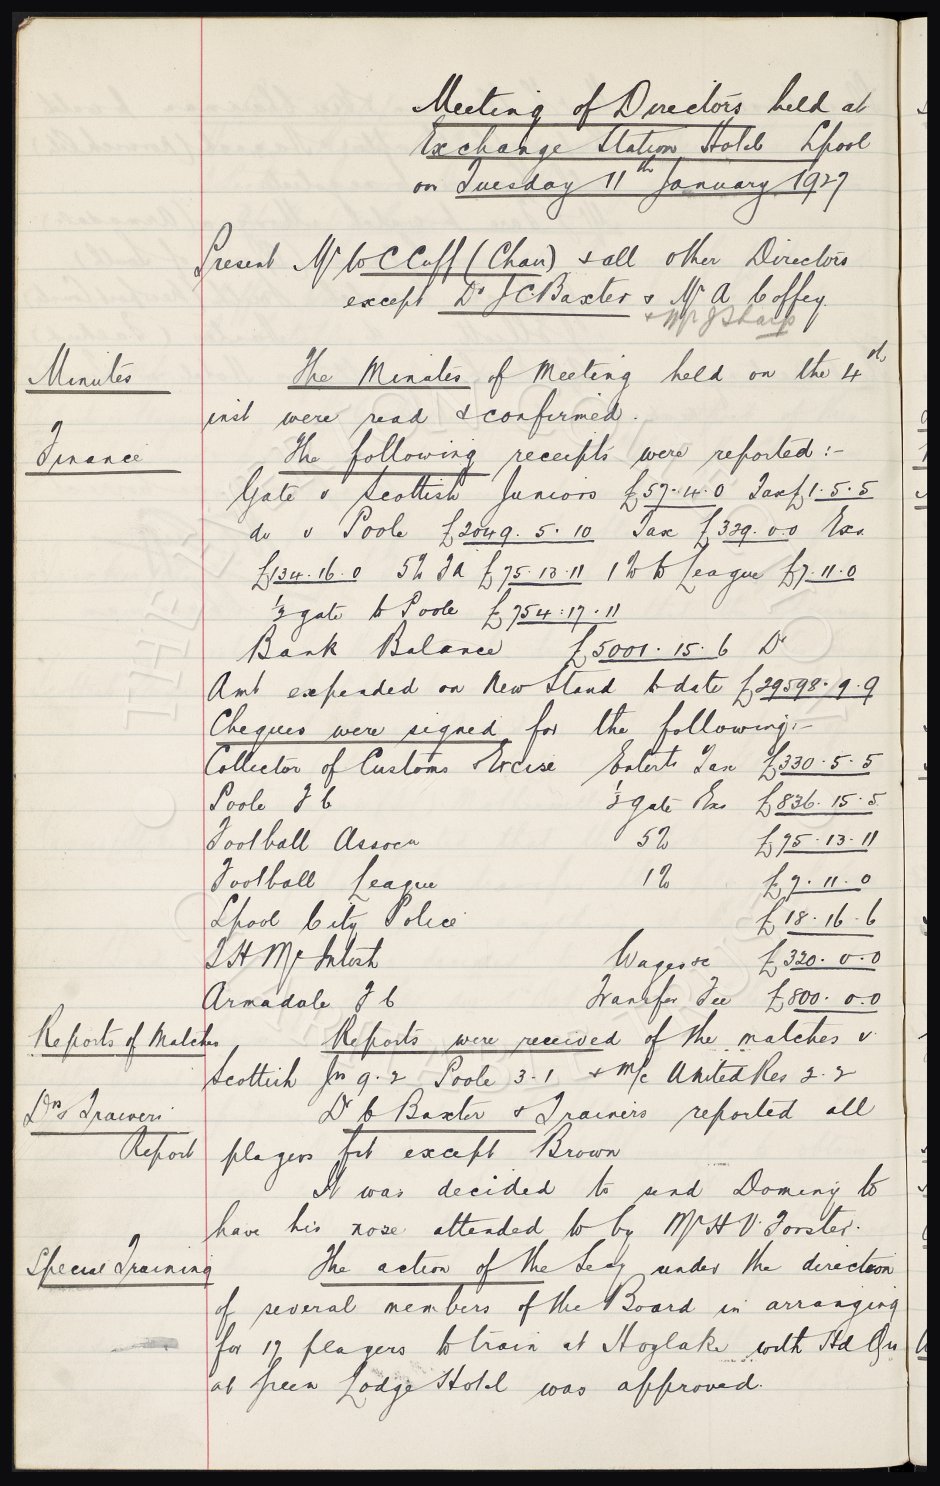 Meeting of Directors held at
Exchange Station Hotel Lpool
on Tuesday 11th January 1927
Present Mr W C Cuff (Chair) & all other Directors
except Dr J C Baxter & Mr A Coffey
& Mr J Sharp
Minutes The Minutes of Meeting held on the 4th
inst were read & confirmed.
Finance The following receipts were reported :-
Gate v Scottish Juniors £57.4.0 Tax £1.5.5
do v Poole £2049.5.10 Tax £329.0.0 Exs
£134.16.0 5% FA £75.13.11 1% to League £7.11.0
½ gate to Poole £754.17.11
Bank Balance £5001.15.6 Dr
Amt expended on New Stand to date £29598.9.9
Cheques were signed for the following:-
Collector of Customs & Excise Enterts Tax £330.5.5
Poole F C ½ Gate Exs £836.15.5
Football Assocn 5% £75.13.11
Football League 1% £7.11.0
Lpool City Police £18.16.6
T H McIntosh Wages &c £320.0.0
Armadale F C Transfer Fee £800.0.0
Reports of Matches Reports were received of the matches v
Scottish Jrs 9.2 Poole 3.1 & M/c United Res 2.2
Drs & Trainers Dr C Baxter & Trainers reported all
Report players fit except Brown
It was decided to send Dominy to
have his nose attended to by Mr H V Forster.
Special Training The action of the Secy under the direction
of several members of the Board in arranging
for 17 players to train at Hoylake with Hd Qrs
at Green Lodge Hotel was approved.